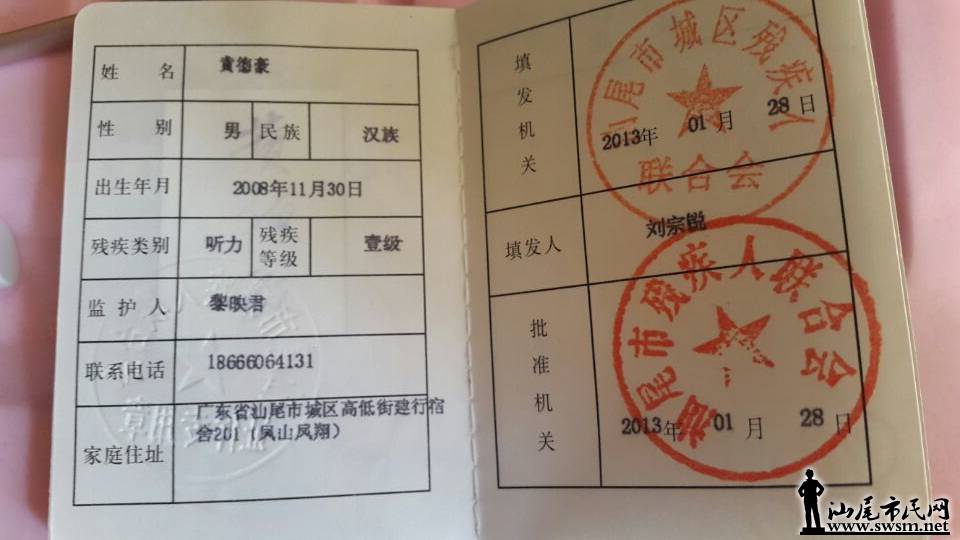 姓名 黄德豪
性别 男 民族 汉族
出生年月 2008年11月30日
残疾类别 听力 残疾等级 壹级
监护人 黎映君
联系电话 18666064131
家庭住址 广东省汕尾市城区高低街建行宿
舍201（凤山凤翔）
填发机关
汕尾市城区残疾人
联合会
2013年 01月 28日
填发人 刘宗锐
批准机关
汕尾市残疾人联合会
2013年 01月 28日
汕尾市民网
www.swsm.net